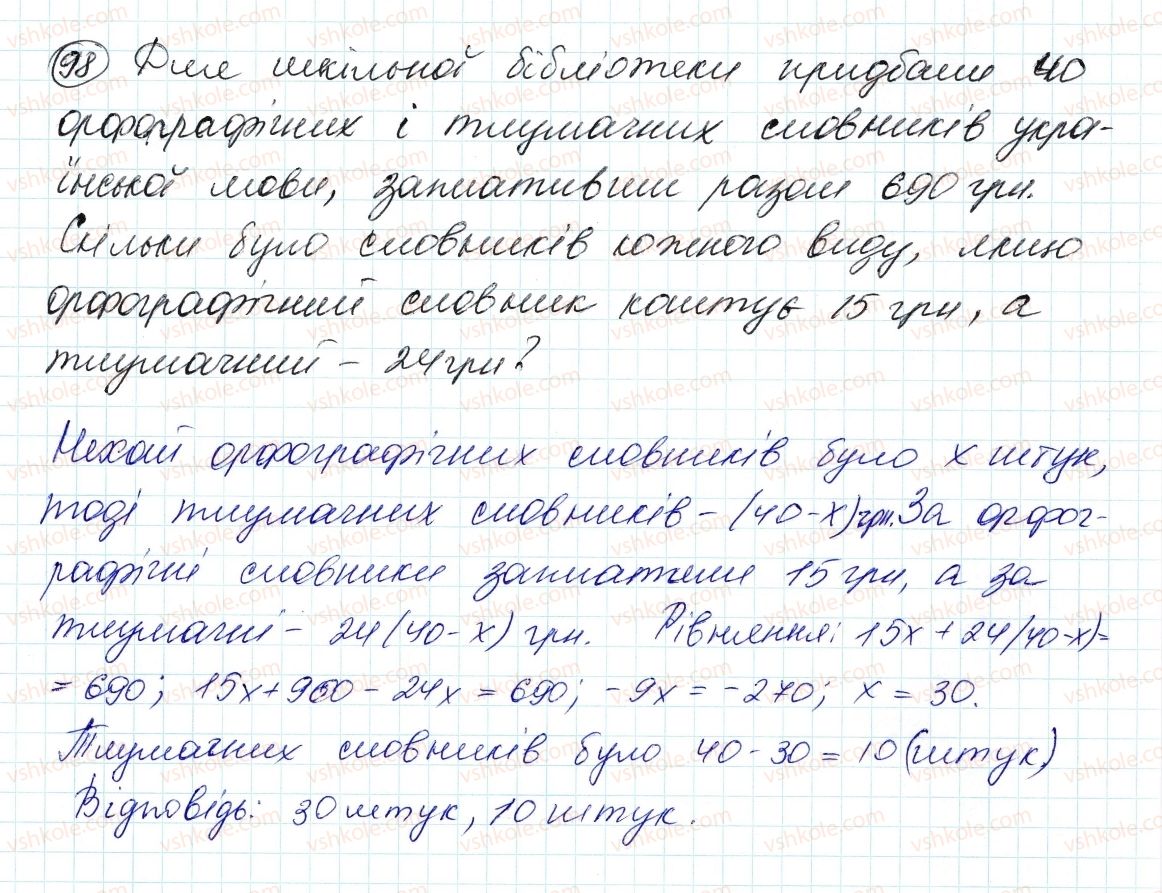 98 Для шкільної бібліотеки придбали 40
орфографічних і тлумачних словників укра-
їнської мови, заплативши разом 690 грн.
Скільки було словників кожного виду, якщо
орфографічний словник коштує 15 грн, а
тлумачний – 24 грн?
Нехай орфографічних словників було x штук,
тоді тлумачних словників – (40-x) грн. За орфог-
рафічні словники заплатили 15 грн, а за
тлумачні – 24(40-x) грн. Рівняння: 15x + 24(40-x)=
= 690; 15x+960 - 24x = 690; -9x = -270; x = 30.
Тлумачних словників було 40 - 30 = 10 (штук)
Відповідь: 30 штук, 10 штук.